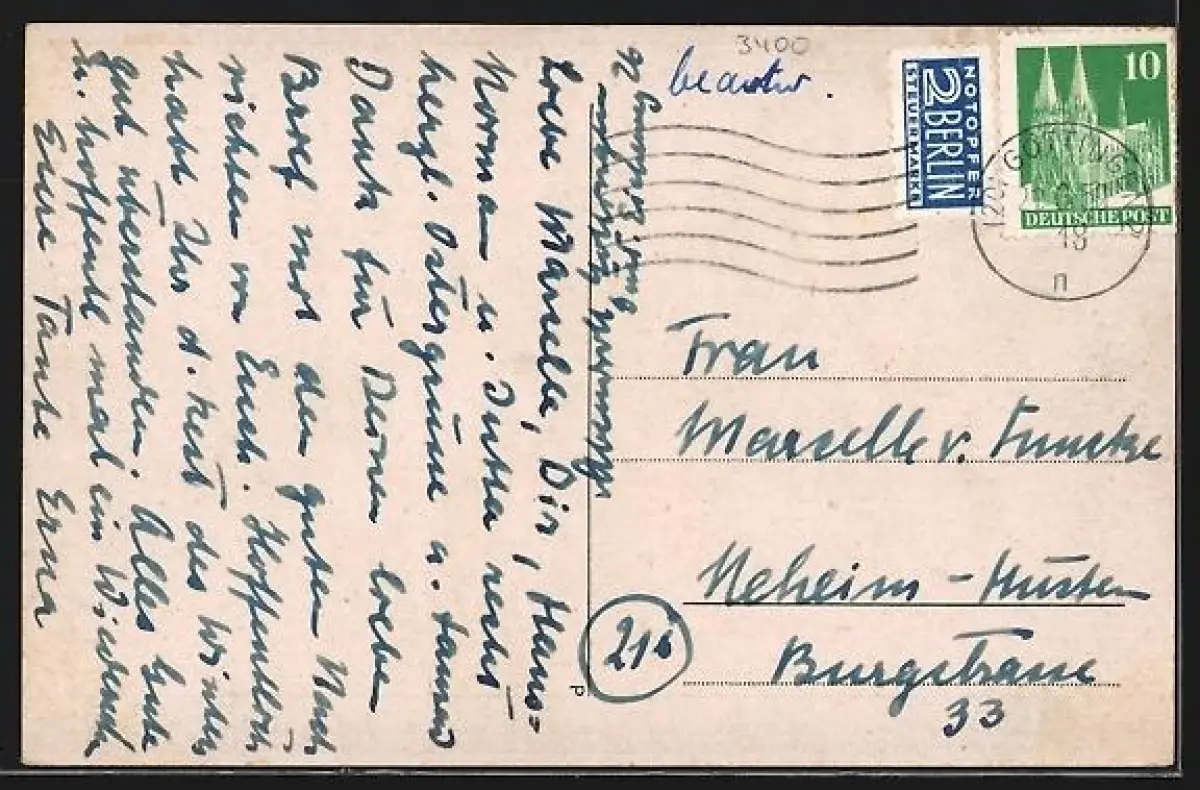 3400
beantw.
NOTOPFER
2 BERLIN
STEUERMARKE
10
DEUTSCHE POST
GÖTTINGEN
Liebe Marcelle, Dir, Hans=
Norman u. Jutta recht
herzl. Ostergrüsse u. tausend
Dank für Deinen lieben
Brief mit den guten Nach
richten von Euch. Hoffentlich
habt Ihr d. Rest des Winters
gut überstanden. Alles Gute
u. hoffentl. mal ein Wiederseh
Eure Tante Erna
Frau
Marcelle v. Funcke
Neheim-Hüsten
21b
Burgstrasse
33
P